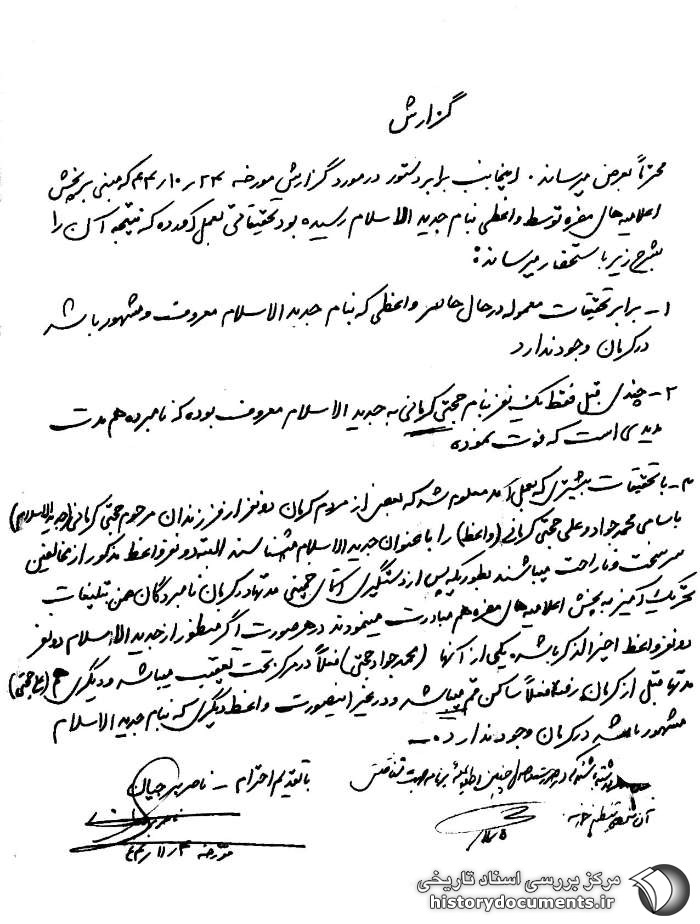 گزارش
محترماً بعرض میرساند. اینجانب برابر دستور در مورد گزارش مورخه ۲۴ر۱۰ر۴۳ که مبنی بر پخش
اعلامیه‌های مضره توسط واعظی بنام جدید الاسلام رسیده بود تحقیقاتی بعمل آورده که نتیجه آن را
بشرح زیر باستحضار میرساند:
۱- برابر تحقیقات معموله در حال حاضر واعظی که بنام جدید الاسلام معروف و مشهور باشد
در کرمان وجود ندارد
۲- چندی قبل فقط یک نفر بنام حجتی کرمانی به جدید الاسلام معروف بوده که نامبرده هم مدت
مدیدی است که فوت نموده
۳- با تحقیقات بیشتری که بعمل آمد معلوم شد که بعضی از مردم کرمان دو نفر از فرزندان مرحوم حجتی کرمانی (جدید الاسلام)
باسامی محمد جواد و علی حجتی کرمانی (واعظ) را با عنوان جدید الاسلام میشناسند البته دو نفر واعظ مذکور از مخالفین
سرسخت و ناراحت میباشند بطوریکه پس از دستگیری آقای خمینی مدتها در کرمان نامبردگان ضمن تبلیغات
تحریک آمیز به پخش اعلامیه‌های مضره هم مبادرت مینمودند در هر صورت اگر منظور از جدید الاسلام دو نفر
دو نفر واعظ اخیر الذکر باشد. یکی از آنها (محمد جواد حجتی) فعلاً در مرکز تحت تعقیب میباشد و دیگری هم (علی حجتی)
مدتها قبل از کرمان رفته فعلاً ساکن قم میباشد و در غیر اینصورت واعظ دیگری که بنام جدید الاسلام
مشهور باشد در کرمان وجود ندارد.
با تقدیم احترام - ناصر پیرجیان
مورخه ۳ر۱۱ر۴۳
مرکز بررسی اسناد تاریخی
historydocuments.ir